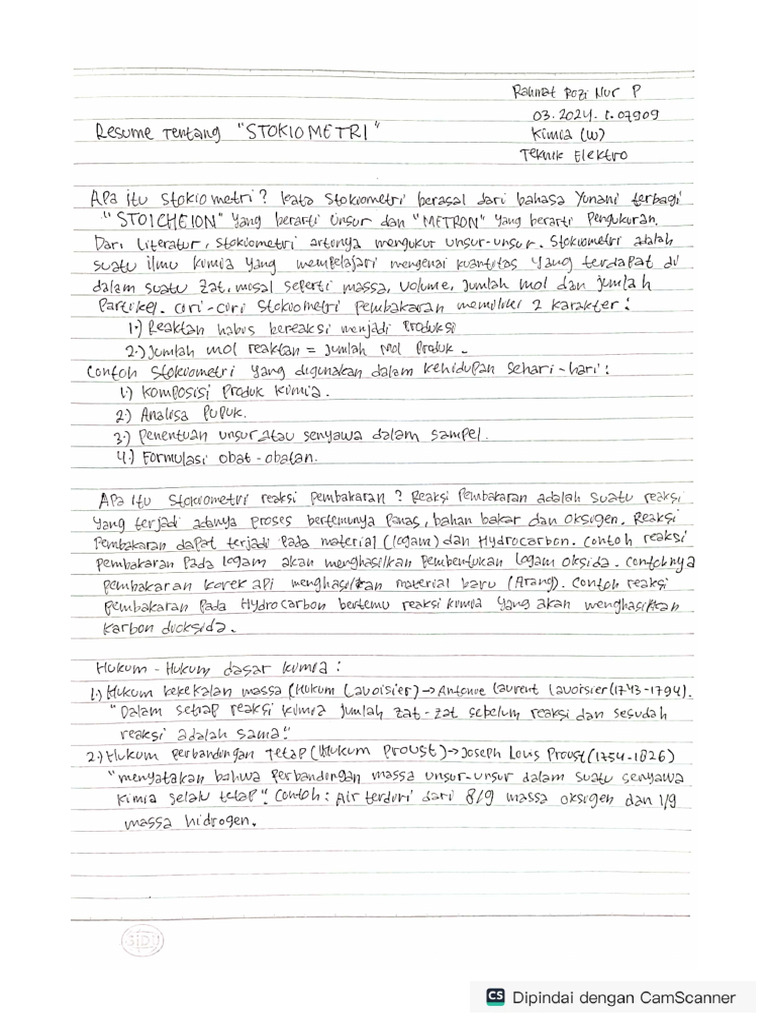 Rahmat Rozi Nur P
03.2024.1.07909
Resume Tentang "STOKIOMETRI"
Kimia (W)
Teknik Elektro
Apa itu Stokiometri? kata Stokiometri berasal dari bahasa Yunani terbagi
"STOICHEION" yang berarti Unsur dan "METRON" yang berarti Pengukuran.
Dari Literatur, Stokiometri artinya mengukur unsur-unsur. Stokiometri adalah
suatu ilmu kimia yang mempelajari mengenai kuantitas yang terdapat di
dalam suatu zat, misal seperti massa, volume, jumlah mol dan jumlah
Partikel. Ciri-ciri Stokiometri pembakaran memiliki 2 karakter :
1.) Reaktan habis bereaksi menjadi Produksi
2.) Jumlah mol reaktan = Jumlah mol Produk.
Contoh Stokiometri yang digunakan dalam kehidupan sehari-hari :
1.) Komposisi Produk Kimia.
2.) Analisa Pupuk.
3.) Penentuan unsur atau senyawa dalam sampel.
4.) Formulasi obat-obatan.
Apa itu Stokiometri reaksi pembakaran? Reaksi Pembakaran adalah suatu reaksi
yang terjadi adanya proses bertemunya Panas, bahan bakar dan oksigen. Reaksi
Pembakaran dapat terjadi Pada material (logam) dan Hydrocarbon. Contoh reaksi
pembakaran pada logam akan menghasilkan pembentukan Logam oksida. Contohnya
pembakaran korek api menghasilkan material baru (Arang). Contoh reaksi
pembakaran pada Hydrocarbon bertemu reaksi kimia yang akan menghasilkan
karbon dioksida.
Hukum - Hukum dasar kimia :
1.) Hukum kekekalan massa (Hukum Lavoisier) → Antonie Laurent Lavoisier (1743-1794).
"Dalam setiap reaksi kimia jumlah zat-zat sebelum reaksi dan sesudah
reaksi adalah sama".
2.) Hukum perbandingan Tetap (Hukum Proust) → Joseph Louis Proust (1754-1826)
"menyatakan bahwa perbandingan massa unsur-unsur dalam suatu senyawa
kimia selalu tetap". Contoh : Air terdiri dari 8/9 massa oksigen dan 1/9
massa hidrogen.
SIDU
CS Dipindai dengan CamScanner